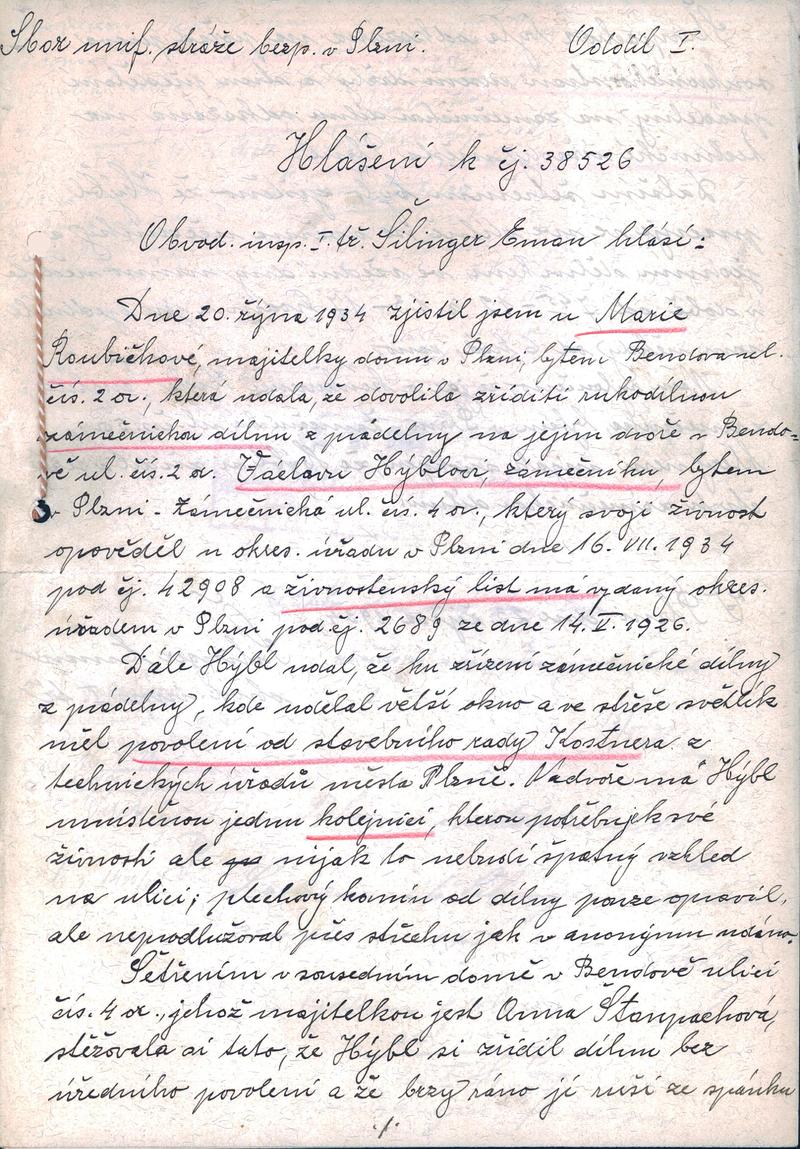 Sbor unif. stráže bezp. v Plzni. Oddíl I.
Hlášení k čj. 38526
Obvod. insp. I. tř. Šilinger Eman hlásí:
Dne 20. října 1934 zjistil jsem u Marie
Roubíčkové, majitelky domu v Plzni, bytem Bendova ul.
čís. 2 or., která udala, že dovolila zříditi rukodílnou
zámečnickou dílnu z prádelny na jejím dvoře v Bendo-
vě ul. čís. 2 or. Václavu Hýblovi, zámečníku, bytem
v Plzni - Zámečnická ul. čís. 4 or., který svoji živnost
opověděl u okres. úřadu v Plzni dne 16. VII. 1934
pod čj. 42908 a živnostenský list má vydaný okres.
úřadem v Plzni pod čj. 2689 ze dne 14. V. 1926.
Dále Hýbl udal, že ku zřízení zámečnické dílny
z prádelny, kde udělal větší okno a ve střeše světlík
měl povolení od stavebního rady Kostnera z
technických úřadů města Plzně. Na dvoře má Hýbl
umístěnou jednu kolejnici, kterou potřebuje k své
živnosti ale nijak to nebudí špatný vzhled
na ulici; plechový komín od dílny pouze opravil,
ale neprodlužoval přes střechu jak v anonymu udáno.
Šetřením v sousedním domě v Bendově ulici
čís. 4 or., jehož majitelkou jest Anna Štanpachová,
stěžovala si tato, že Hýbl si zřídil dílnu bez
úředního povolení a že brzy ráno jí ruší ze spánku
./.